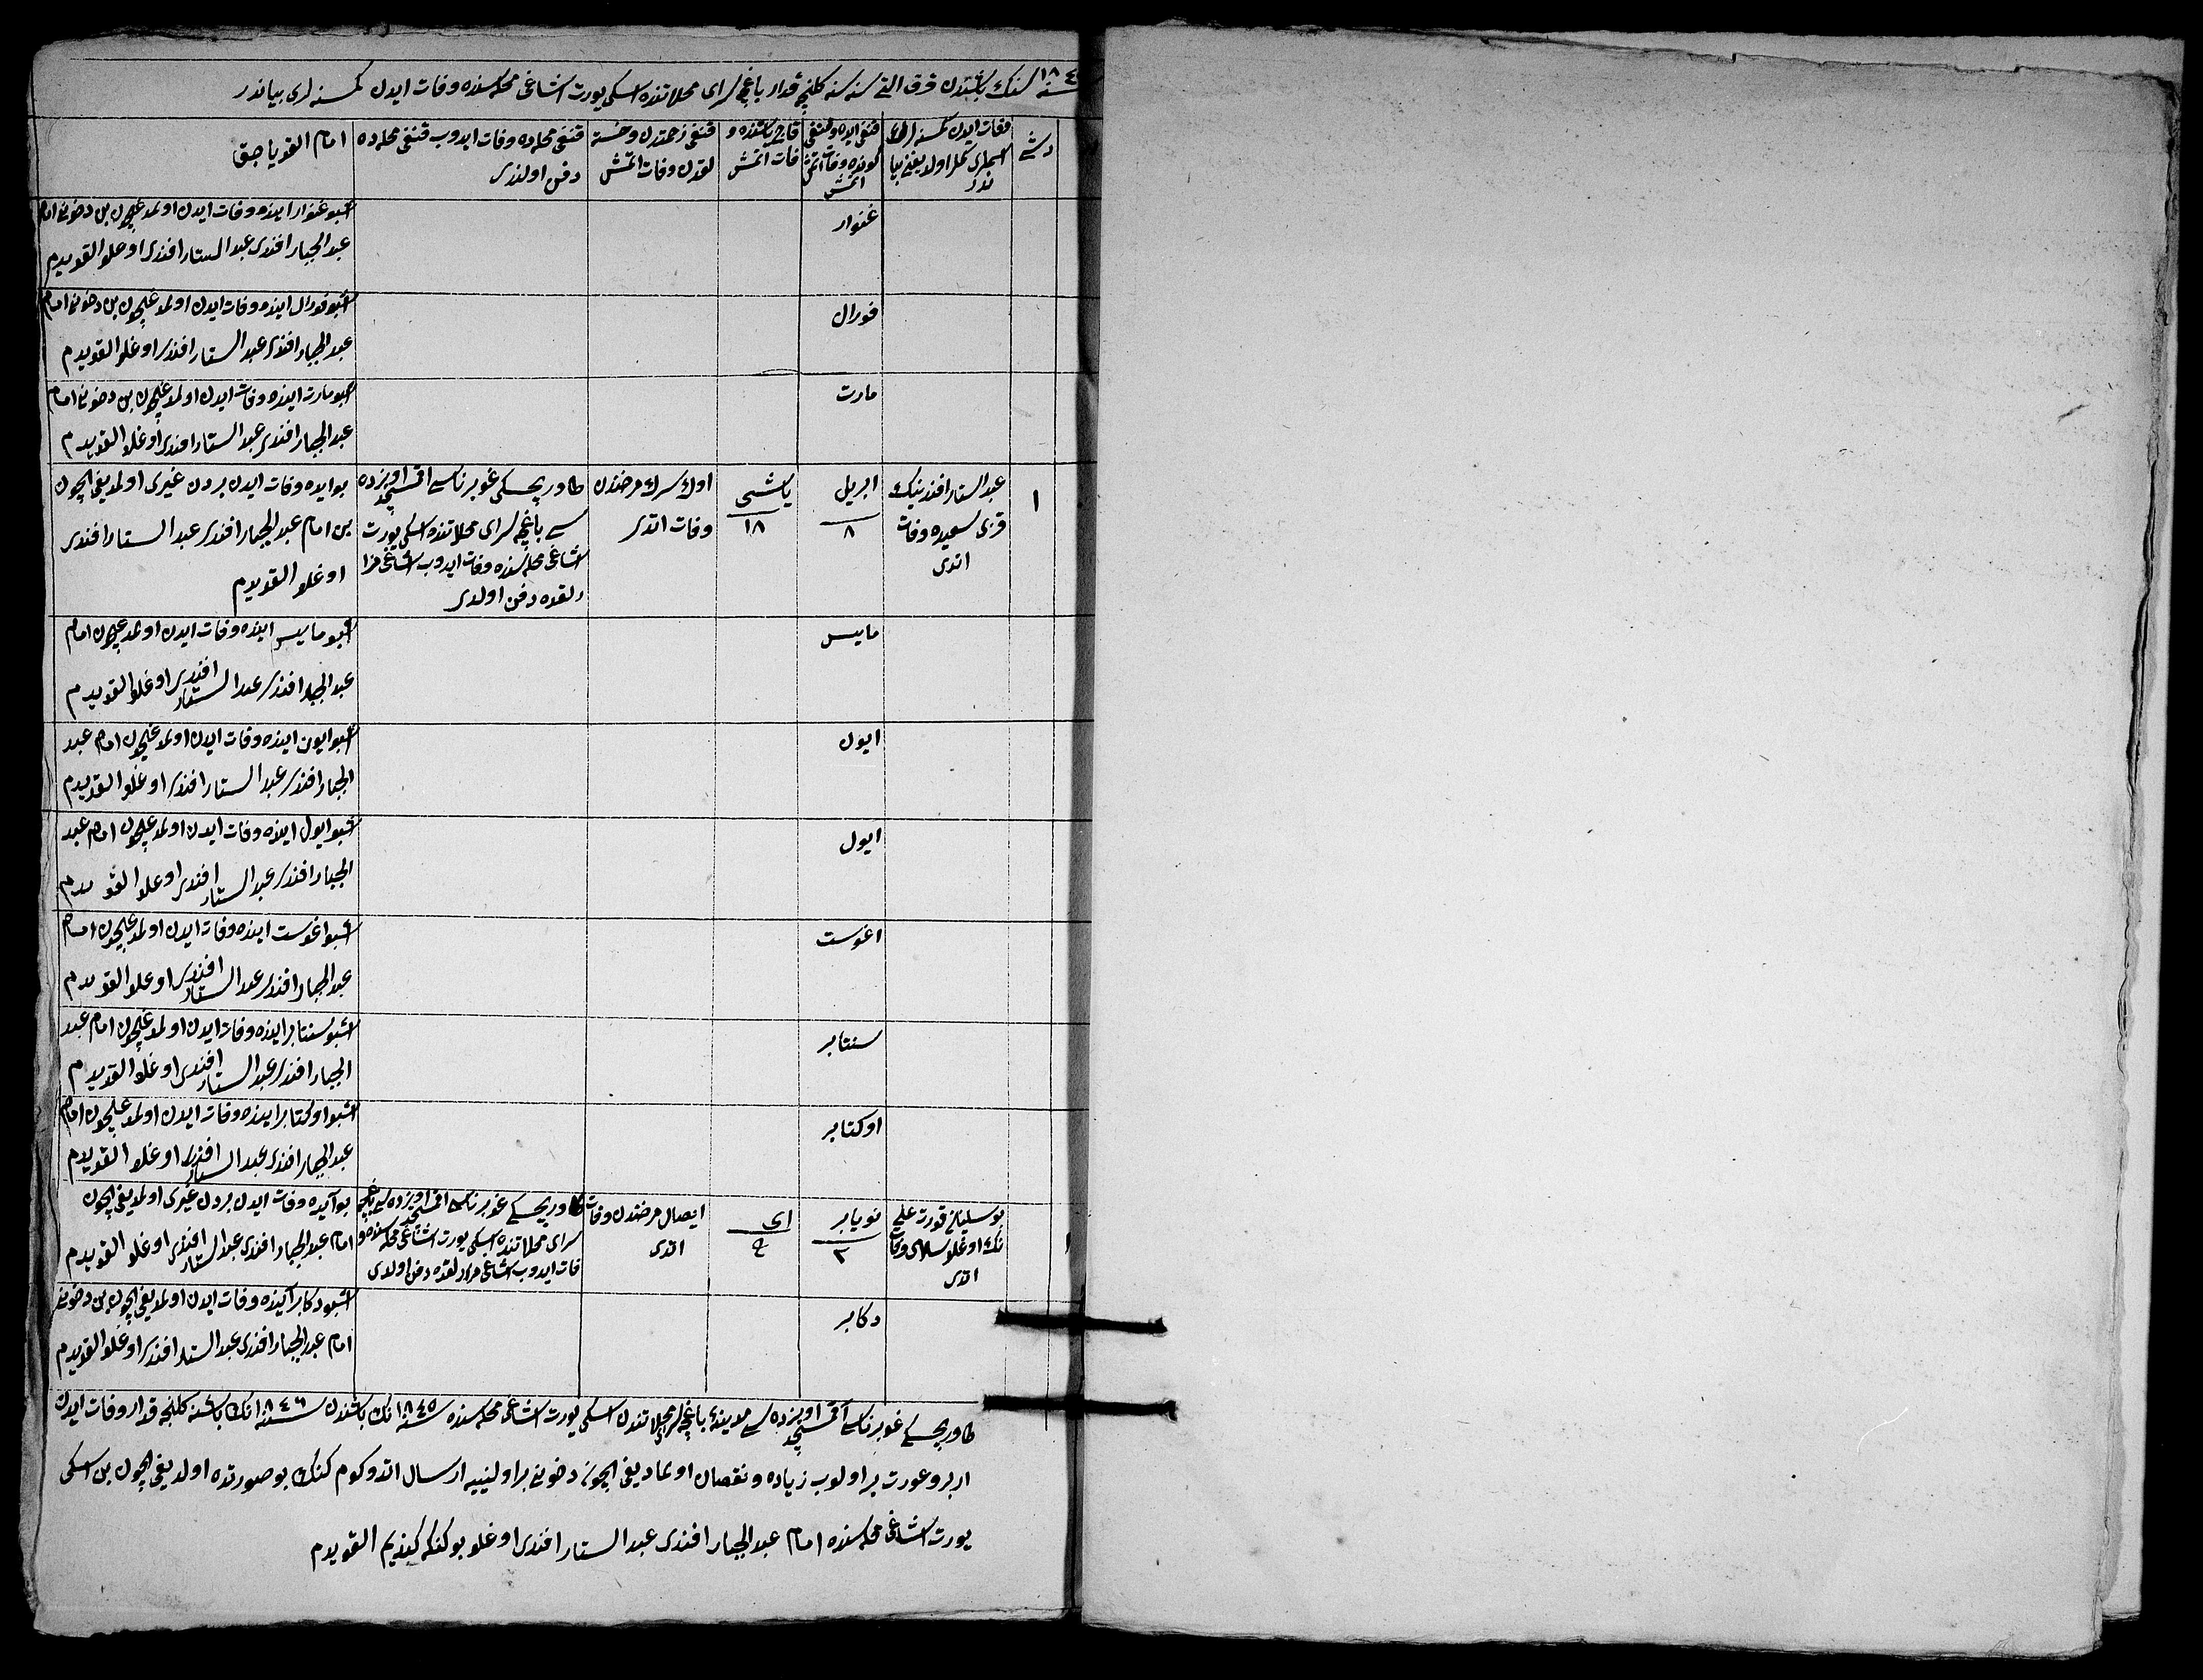 سنه ١٨٤ سنك باشندن قرق التی سنه سنه کلنجه قدار باغچه سرای محلاتنده اسکی یورت اشاغی محله سنده وفات ایدن کمسنه لری بیاندر
وفات ایدن کمسنه لر
اسملری کملر اولدیغنی بیا
ندر
قنغی ایده و قنغی
کونده وفات اتمش
قاچ یاشنده و
فات اتمش
قنغی زحمتدن و خسته
لقدن وفات اتمش
قنغی محلده وفات ایدوب قنغی محلده
دفن اولندی
امام القویاجق
غنوار
اشبو غنوار اینده وفات ایدن اولمدیغیچون بن دخونی امام
عبد الجبار افندی عبد الستار افندی اوغلو القویدم
فورال
اشبو فورال اینده وفات ایدن اولمدیغیچون بن دخونی امام
عبد الجبار افندی عبد الستار افندی اوغلو القویدم
مارت
اشبو مارت اینده وفات ایدن اولمدیغیچون بن دخونی امام
عبد الجبار افندی عبد الستار افندی اوغلو القویدم
١
عبد الستار افندینك
قزی سعیده وفات
اتدی
ابریل
٨
یاشی
١٨
اولك سرك مرضندن
وفات اتدی
طاوریچسکی غوبرناسی اقمسجد اویزده
سی باغچه سرای محلاتنده اسکی یورت
اشاغی محله سنده وفات ایدوب اشاغی مزا
رلقده دفن اولدی
بو ایده وفات ایدن بردن غیری اولمدیغی ایچون
بن امام عبد الجبار افندی عبد الستار افندی
اوغلو القویدم
مایس
اشبو مایس اینده وفات ایدن اولمدیغیچون امام
عبد الجبار افندی عبد الستار افندی اوغلو القویدم
ایون
اشبو ایون اینده وفات ایدن اولمدیغیچون امام عبد
الجبار افندی عبد الستار افندی اوغلو القویدم
ایول
اشبو ایول اینده وفات ایدن اولمدیغیچون امام عبد
الجبار افندی عبد الستار افندی اوغلو القویدم
اغوست
اشبو اغوست اینده وفات ایدن اولمدیغیچون امام
عبد الجبار افندی عبد الستار افندی اوغلو القویدم
سنتابر
اشبو سنتابر اینده وفات ایدن اولمدیغیچون امام عبد
الجبار افندی عبد الستار افندی اوغلو القویدم
اوکتابر
اشبو اوکتابر اینده وفات ایدن اولمدیغیچون امام
عبد الجبار افندی عبد الستار افندی اوغلو القویدم
١
قورت علی
نك اوغلو وفات
اتدی
نویابر
٢
ای
٤
ایصال مرضندن وفات
اتدی
طاوریچسکی غوبرناسی اقمسجد اویزده سی باغچه
سرای محلاتنده اسکی یورت اشاغی محله سنده و
فات ایدوب اشاغی مزارلقده دفن اولدی
بو آیده وفات ایدن بردن غیری اولمدیغی ایچون
امام عبد الجبار افندی عبد الستار افندی اوغلو القویدم
دکابر
اشبو دکابر آینده وفات ایدن اولمدیغی ایچون بن دخونی
امام عبد الجبار افندی عبد الستار افندی اوغلو القویدم
طاوریچسکی غوبرناسی آقمسجد اویزده سی مدینۀ باغچه سرای محلاتندن اسکی یورت اشاغی محله سنده سنه ١٨٤٥ نك باشندن سنه ١٨٤٦ نك باشنه کلنجه قدار وفات ایدن
ار بر و عورت بر اولوب زیاده و نقصان اولمادیغی ایچون دخونی براولنییه ارسال اتدوکوم کنك بو صورتده اولدیغی ایچون بن اسکی
یورت اشاغی محله سنده امام عبد الجبار افندی عبد الستار افندی اوغلو بو کنکه کندیم القویدم